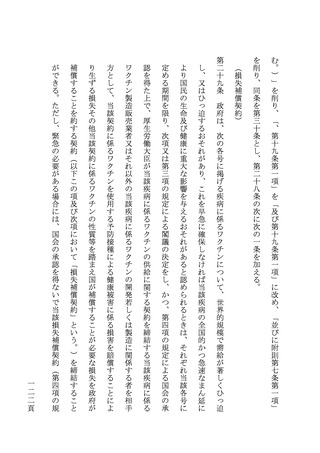 む。）」を削り、「、第十九条第一項」を「及び第十九条第一項」に改め、「並びに附則第七条第一項」
を削り、同条を第三十条とし、第二十八条の次に次の一条を加える。
（損失補償契約）
第二十九条　政府は、次の各号に掲げる疾病に係るワクチンについて、世界的規模で需給が著しくひっ迫
し、又はひっ迫するおそれがあり、これを早急に確保しなければ当該疾病の全国的かつ急速なまん延に
より国民の生命及び健康に重大な影響を与えるおそれがあると認められるときは、それぞれ当該各号に
定める期間を限り、次項又は第三項の規定による閣議の決定をし、かつ、第四項の規定による国会の承
認を得た上で、厚生労働大臣が当該疾病に係るワクチンの供給に関する契約を締結する当該疾病に係る
ワクチン製造販売業者又はそれ以外の当該疾病に係るワクチンの開発若しくは製造に関係する者を相手
方として、当該契約に係るワクチンを使用する予防接種による健康被害に係る損害を賠償することによ
り生ずる損失その他当該契約に係るワクチンの性質等を踏まえ国が補償することが必要な損失を政府が
補償することを約する契約（以下この項及び次項において「損失補償契約」という。）を締結すること
ができる。ただし、緊急の必要がある場合には、国会の承認を得ないで当該損失補償契約（第四項の規
一二二頁